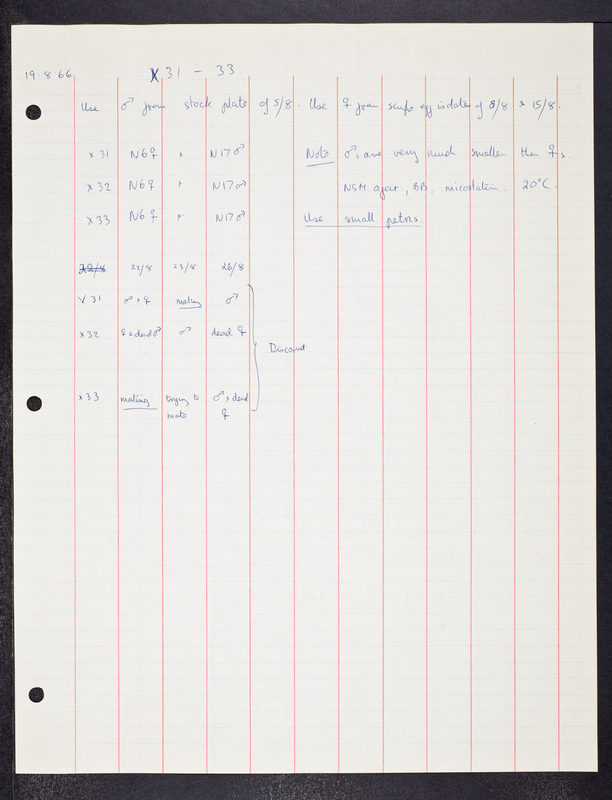 19. 8 66. X31 - 33.
Use ♂ from stock plate of 5/8. Use ♀ from single egg isolates of 8/8 & 15/8.
x 31 N6♀ x N17♂ Note ♂s are very much smaller than ♀s.
x 32 N6♀ x N17♂ NSM agar, BB, nicostatin. 20°C.
x 33 N6♀ x N17♂ Use small petris
22/8 22/8 23/8 26/8
X 31 ♂ + ♀ mating ♂
x32 ♀ + dead ♂ ♂ dead ♀
Discard
x33 mating trying to ♂ + dead
mate ♀